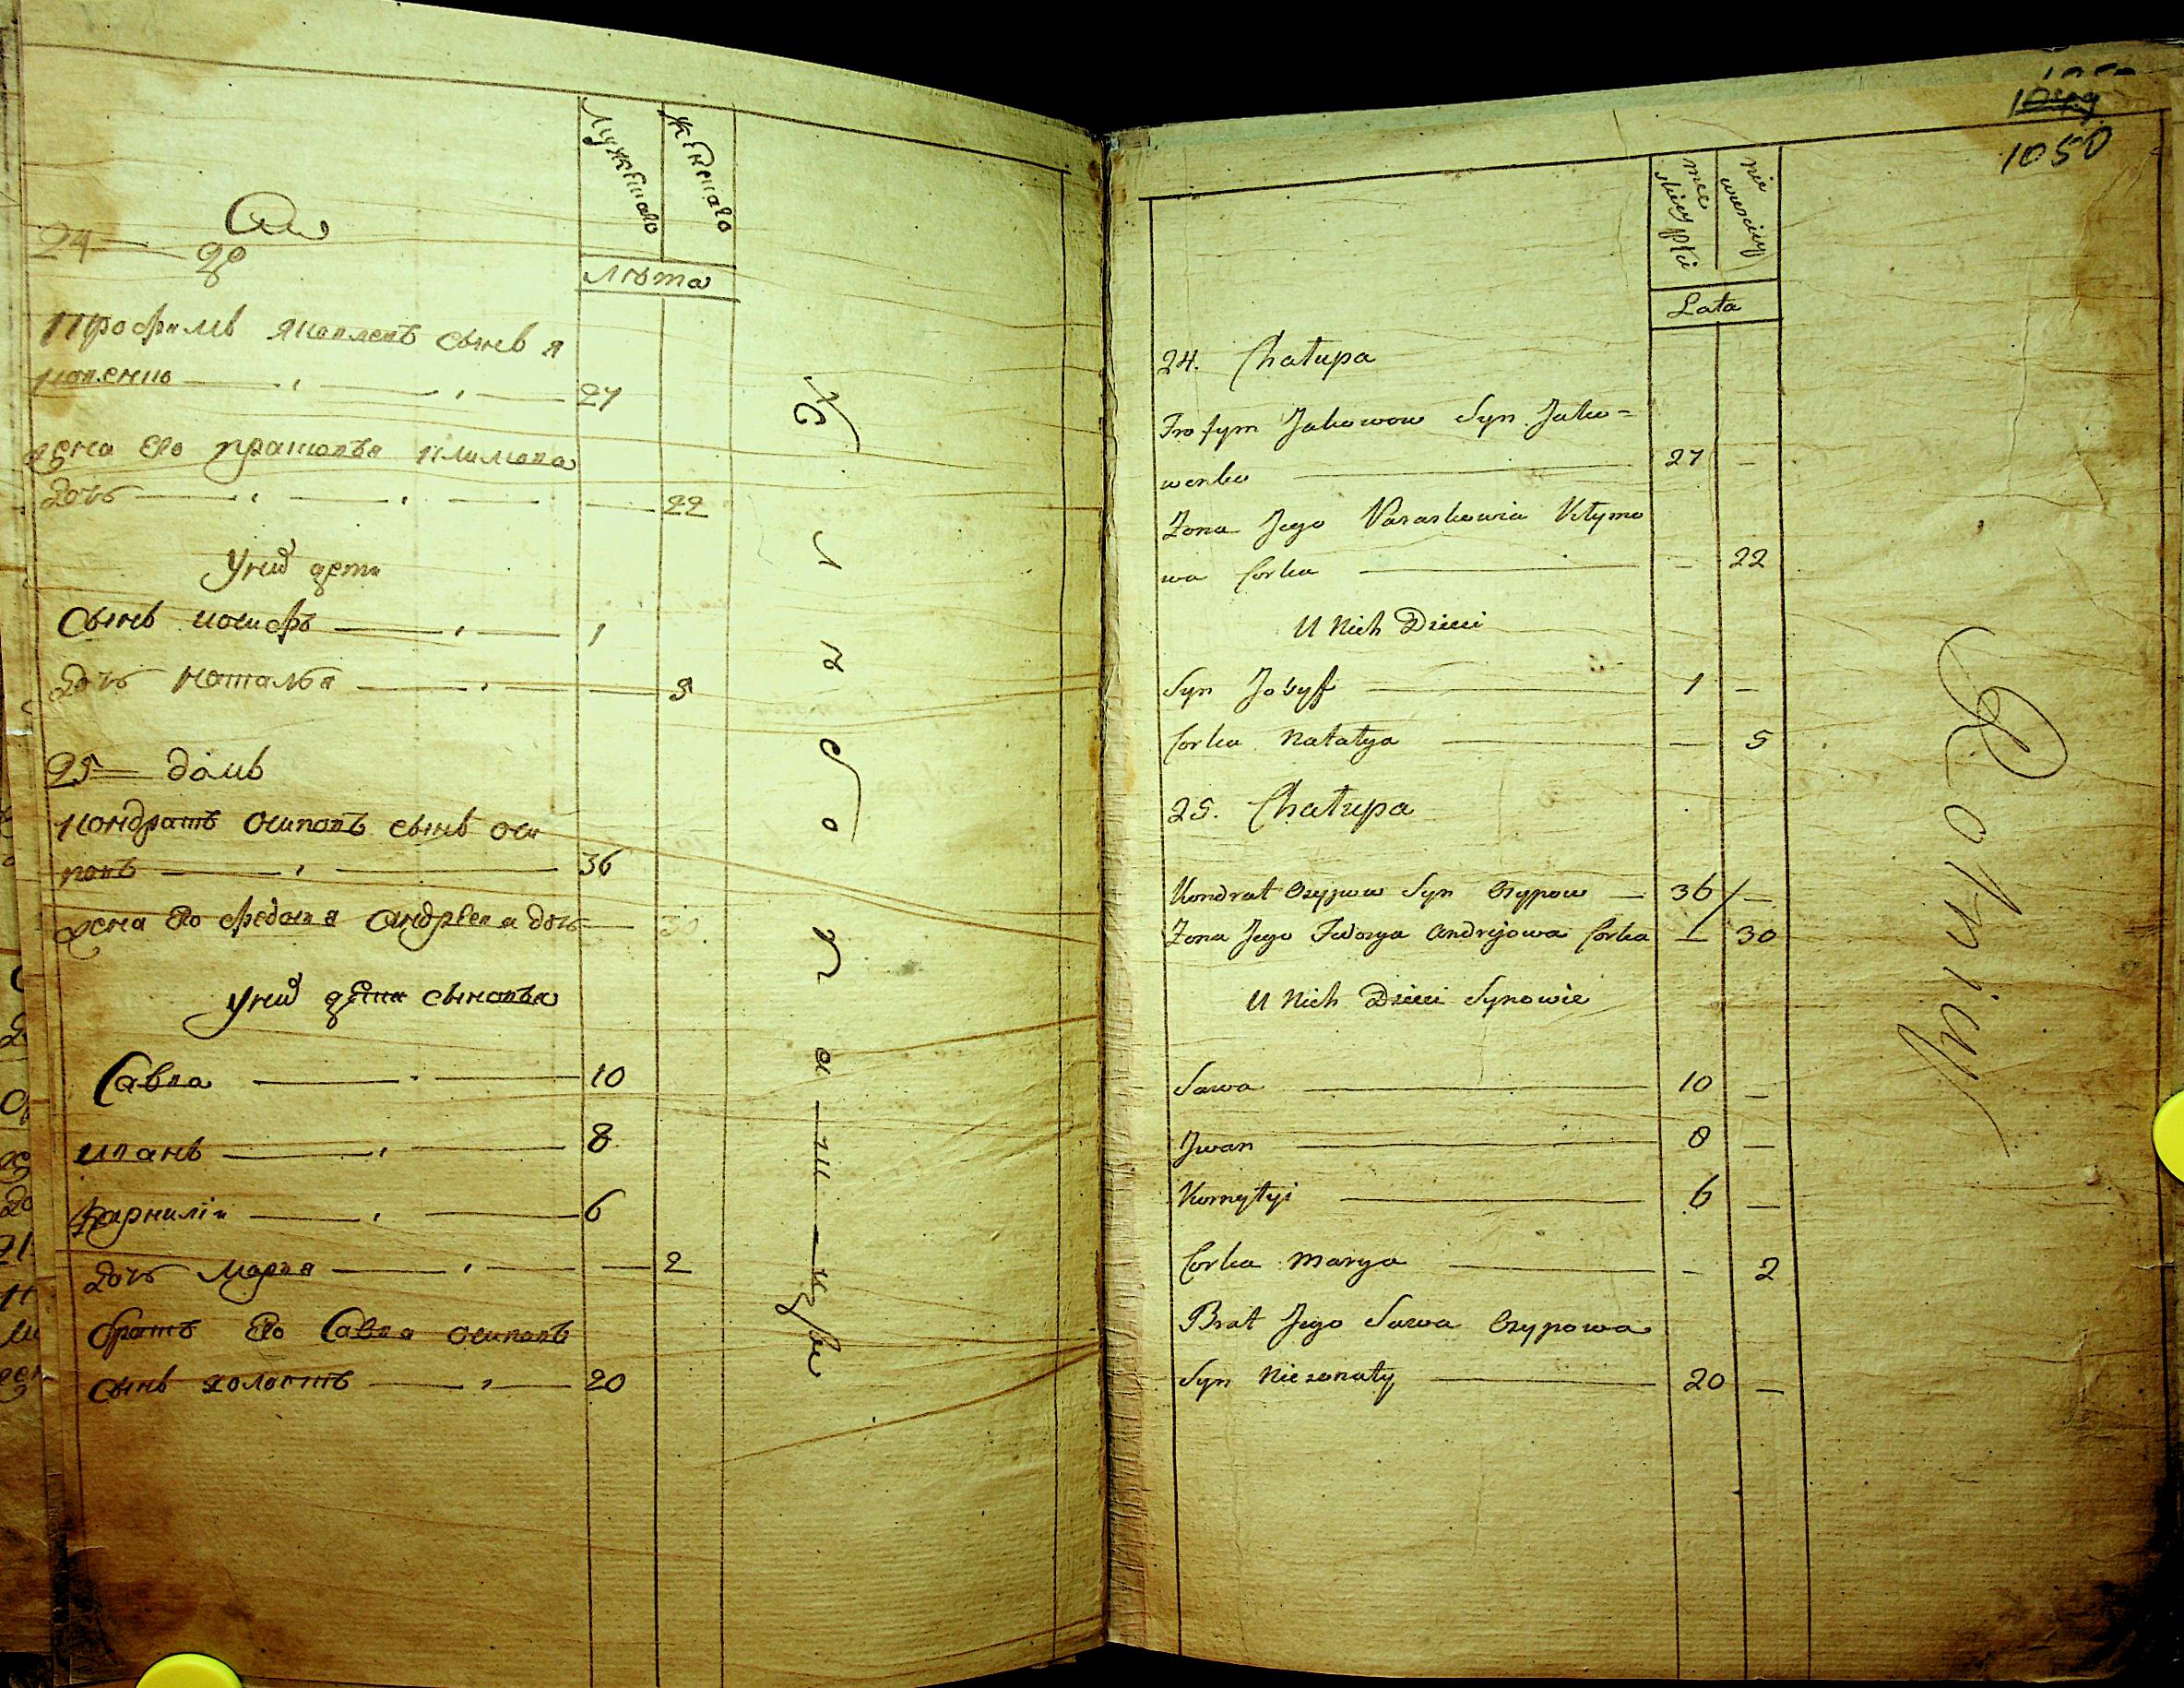 Мужескаго
Женскаго
Лѣта
24
Трофимъ Яковлевъ сынъ Я
ковенко 27
жена его Прасковья Климова
дочь 22
У них дети
Сынъ иосифъ 1
дочь Наталья 5
25 домъ
Кондратъ Осиповъ сынъ Оси
повъ 36
жена его Федосия Андреева дочь 30
У них дети сыновья
Савва 10
иванъ 8
Карнилiи 6
дочь Марья 2
братъ его Савва Осиповъ
сынъ холостъ 20
1050
męskiey płci
niewieściey
Lata
24. Chałupa
Trofym Jakowow Syn Jako=
wenko 27 —
Zona Jego Paraskowia Kłymo
wa Corka — 22
U Nich Dzieci
Syn Josyff 1 —
Corka Natalya — 5
25. Chałupa
Kondrat Osypow Syn Osypow 36 —
Zona Jego Fedosya Andrejowa Corka — 30
U Nich Dzieci Synowie
Sawa 10 —
Jwan 8 —
Kornyłyi 6 —
Corka Marya — 2
Brat Jego Sawa Osypowa
Syn Niezonaty 20 —
Rolnicy